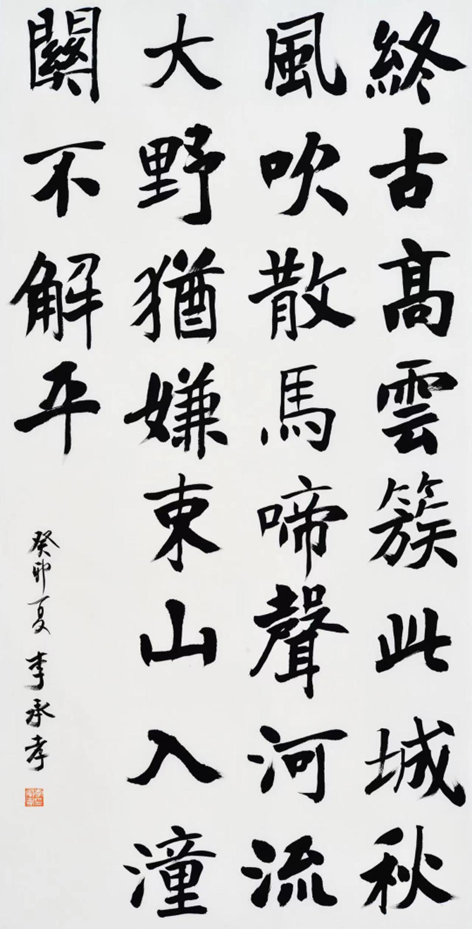 終古高雲簇此城秋
風吹散馬啼聲河流
大野猶嫌束山入潼
關不解平
癸卯夏李承孝